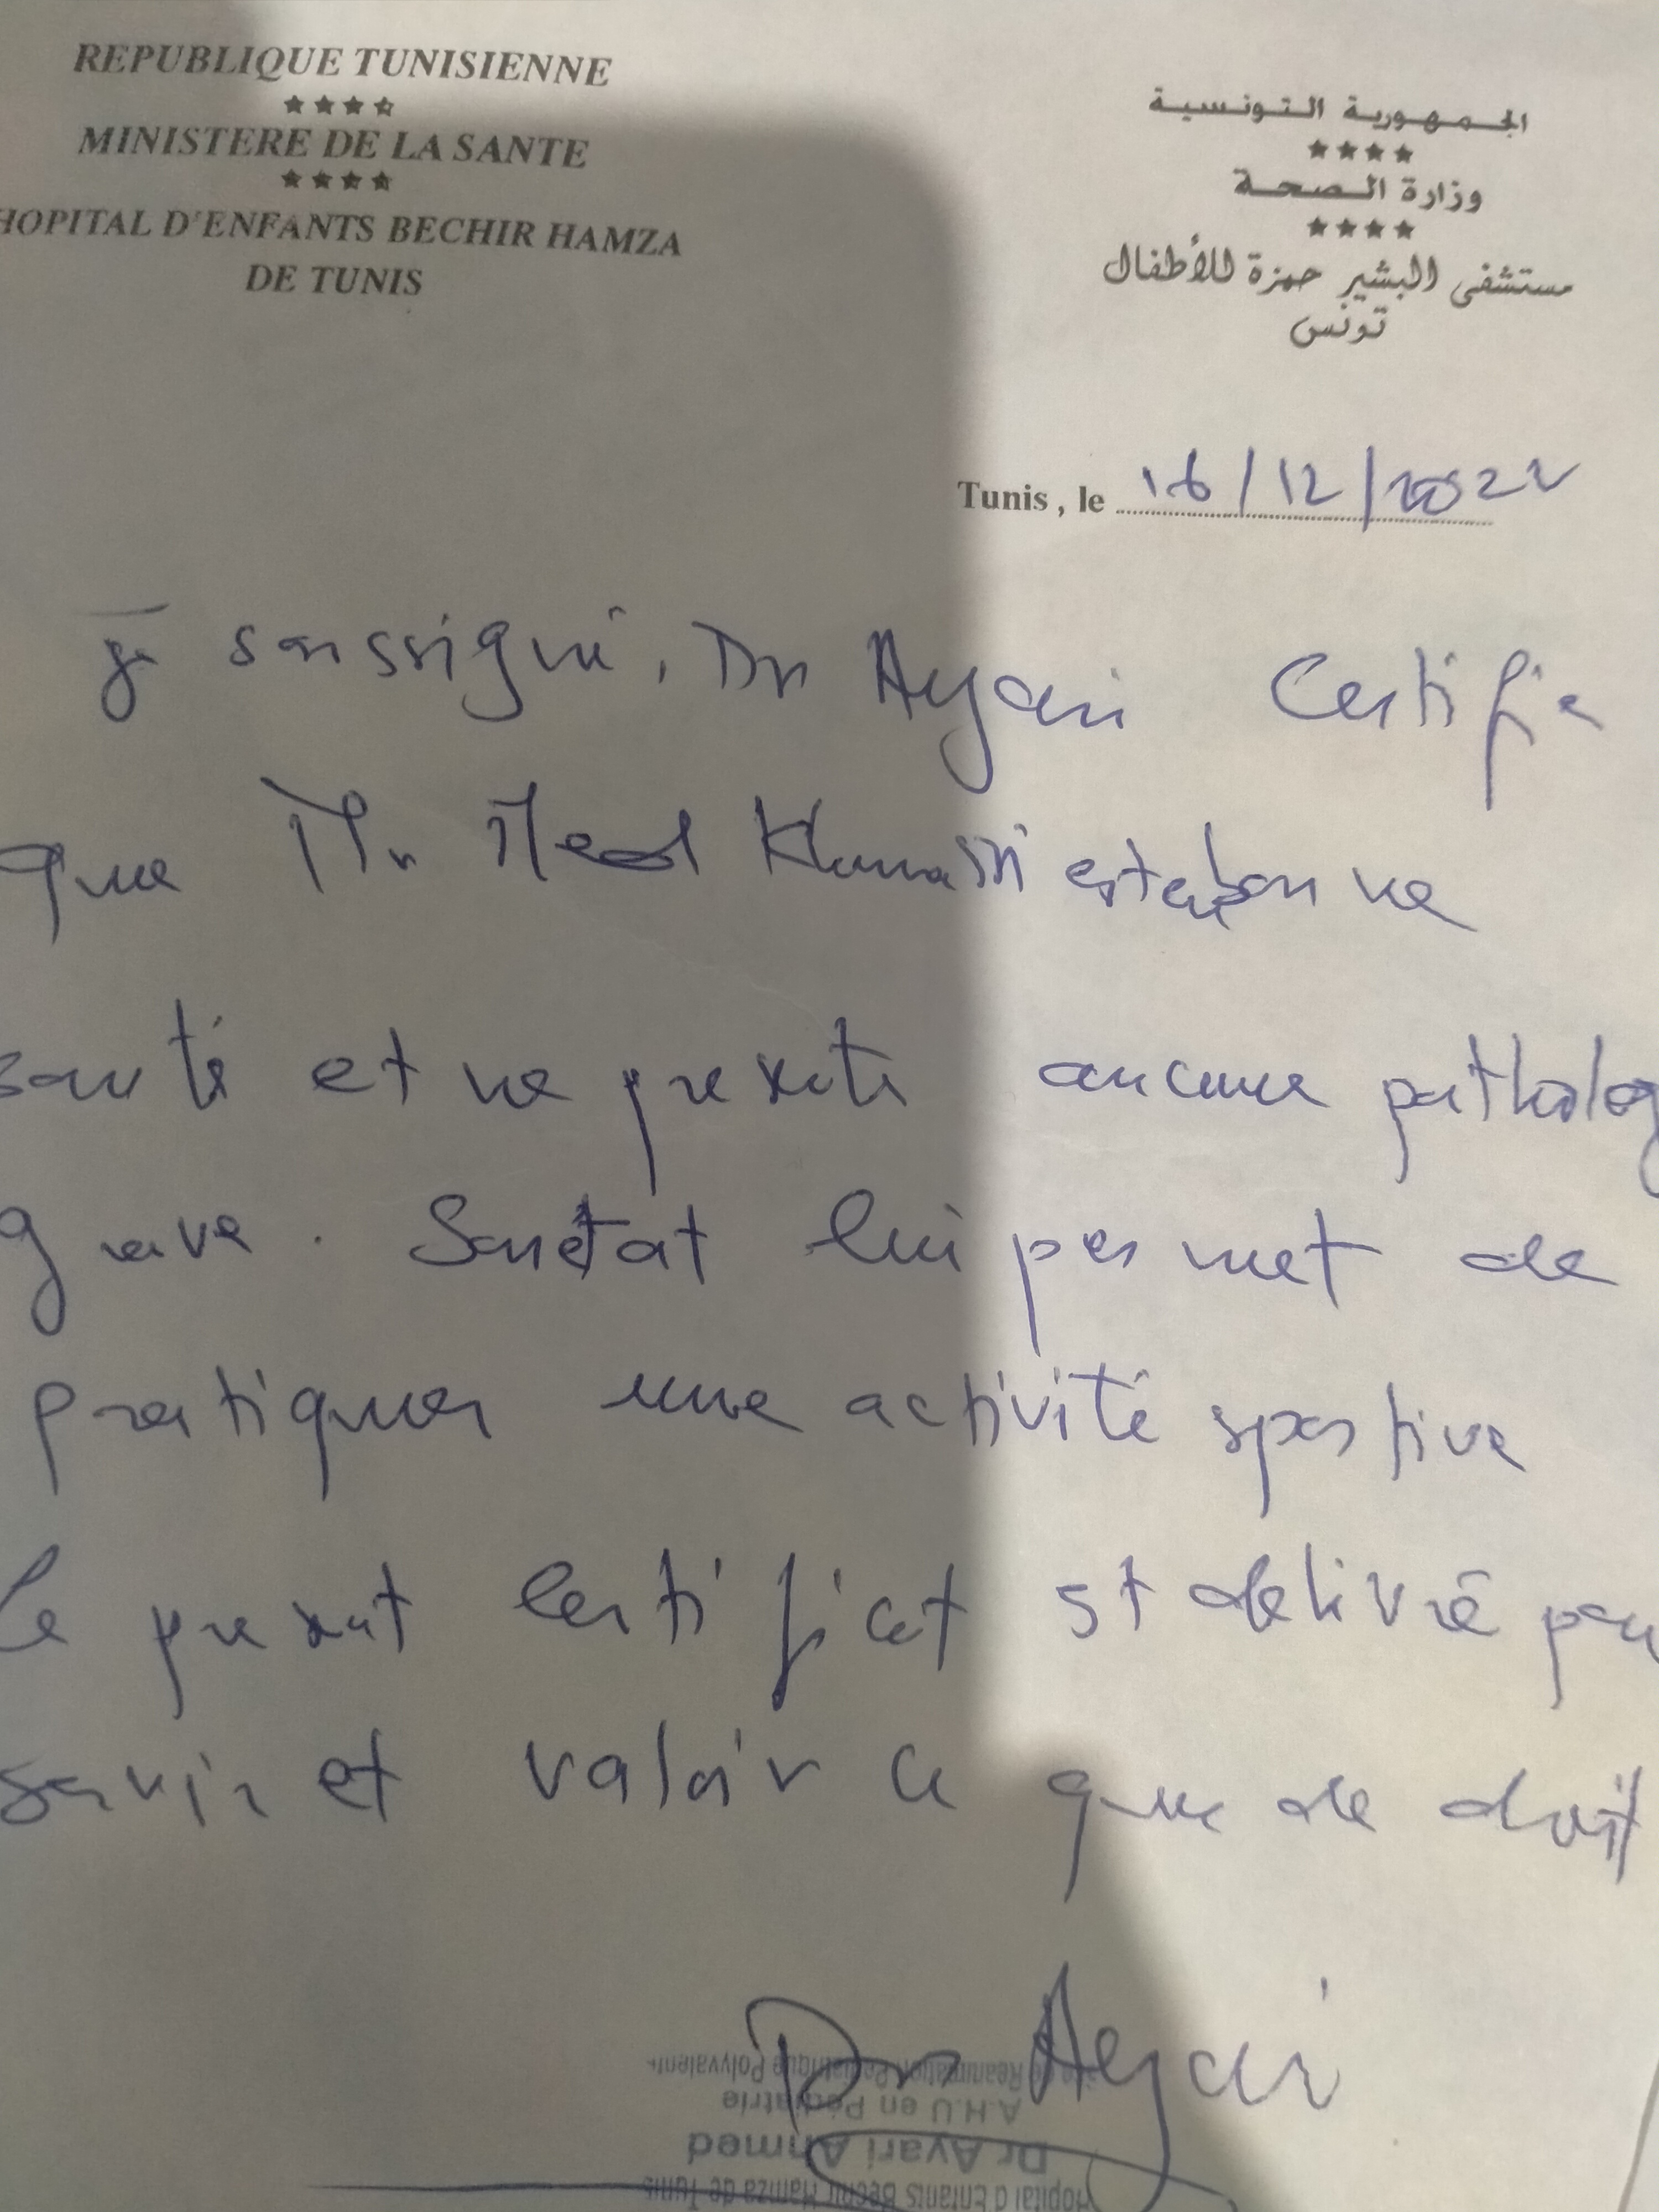 REPUBLIQUE TUNISIENNE
★★★★
MINISTERE DE LA SANTE
★★★★
HOPITAL D'ENFANTS BECHIR HAMZA
DE TUNIS
الجمهورية التونسية
★★★★
وزارة الصحة
★★★★
مستشفى البشير حمزة للأطفال
تونس
Tunis , le 16/12/2022
Je soussigné, Dr Ayari Certifie
que Mr Med est en bonne
santé et ne présente aucune patholog
grave. Son état lui permet de
pratiquer une activité sportive
Le présent certificat est délivré pou
servir et valoir ce que de droit
Dr Ayari
Hopital d'Enfants Bechir Hamza de Tunis
Dr Ayari Ahmed
A.H.U en Pédiatrie
de Réanimation Pédiatrique Polyvalent